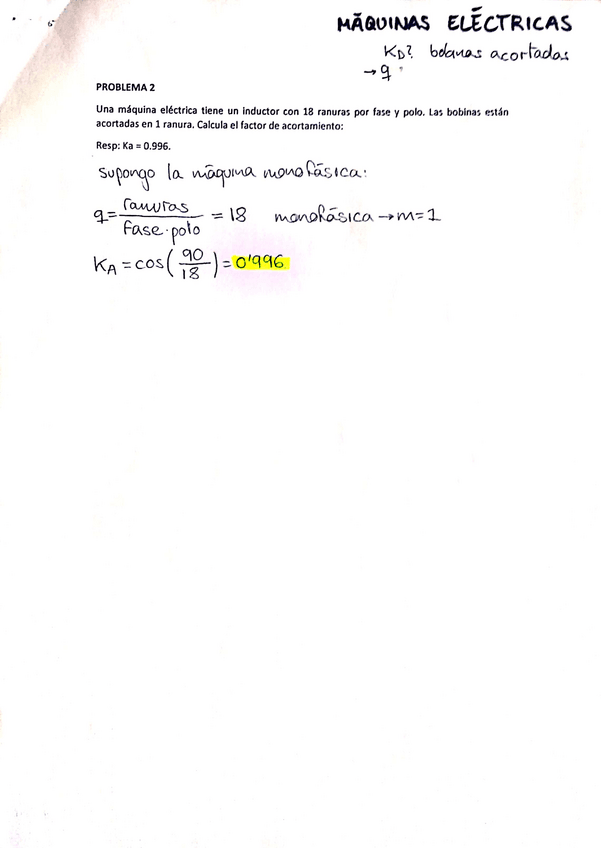 MÁQUINAS ELÉCTRICAS
KD? bobinas acortadas
→q
PROBLEMA 2
Una máquina eléctrica tiene un inductor con 18 ranuras por fase y polo. Las bobinas están
acortadas en 1 ranura. Calcula el factor de acortamiento:
Resp: Ka = 0.996.
supongo la máquina monofásica:
q = ranuras / fase·polo = 18 monofásica → m=1
KA = cos( 90 / 18 ) = 0'996